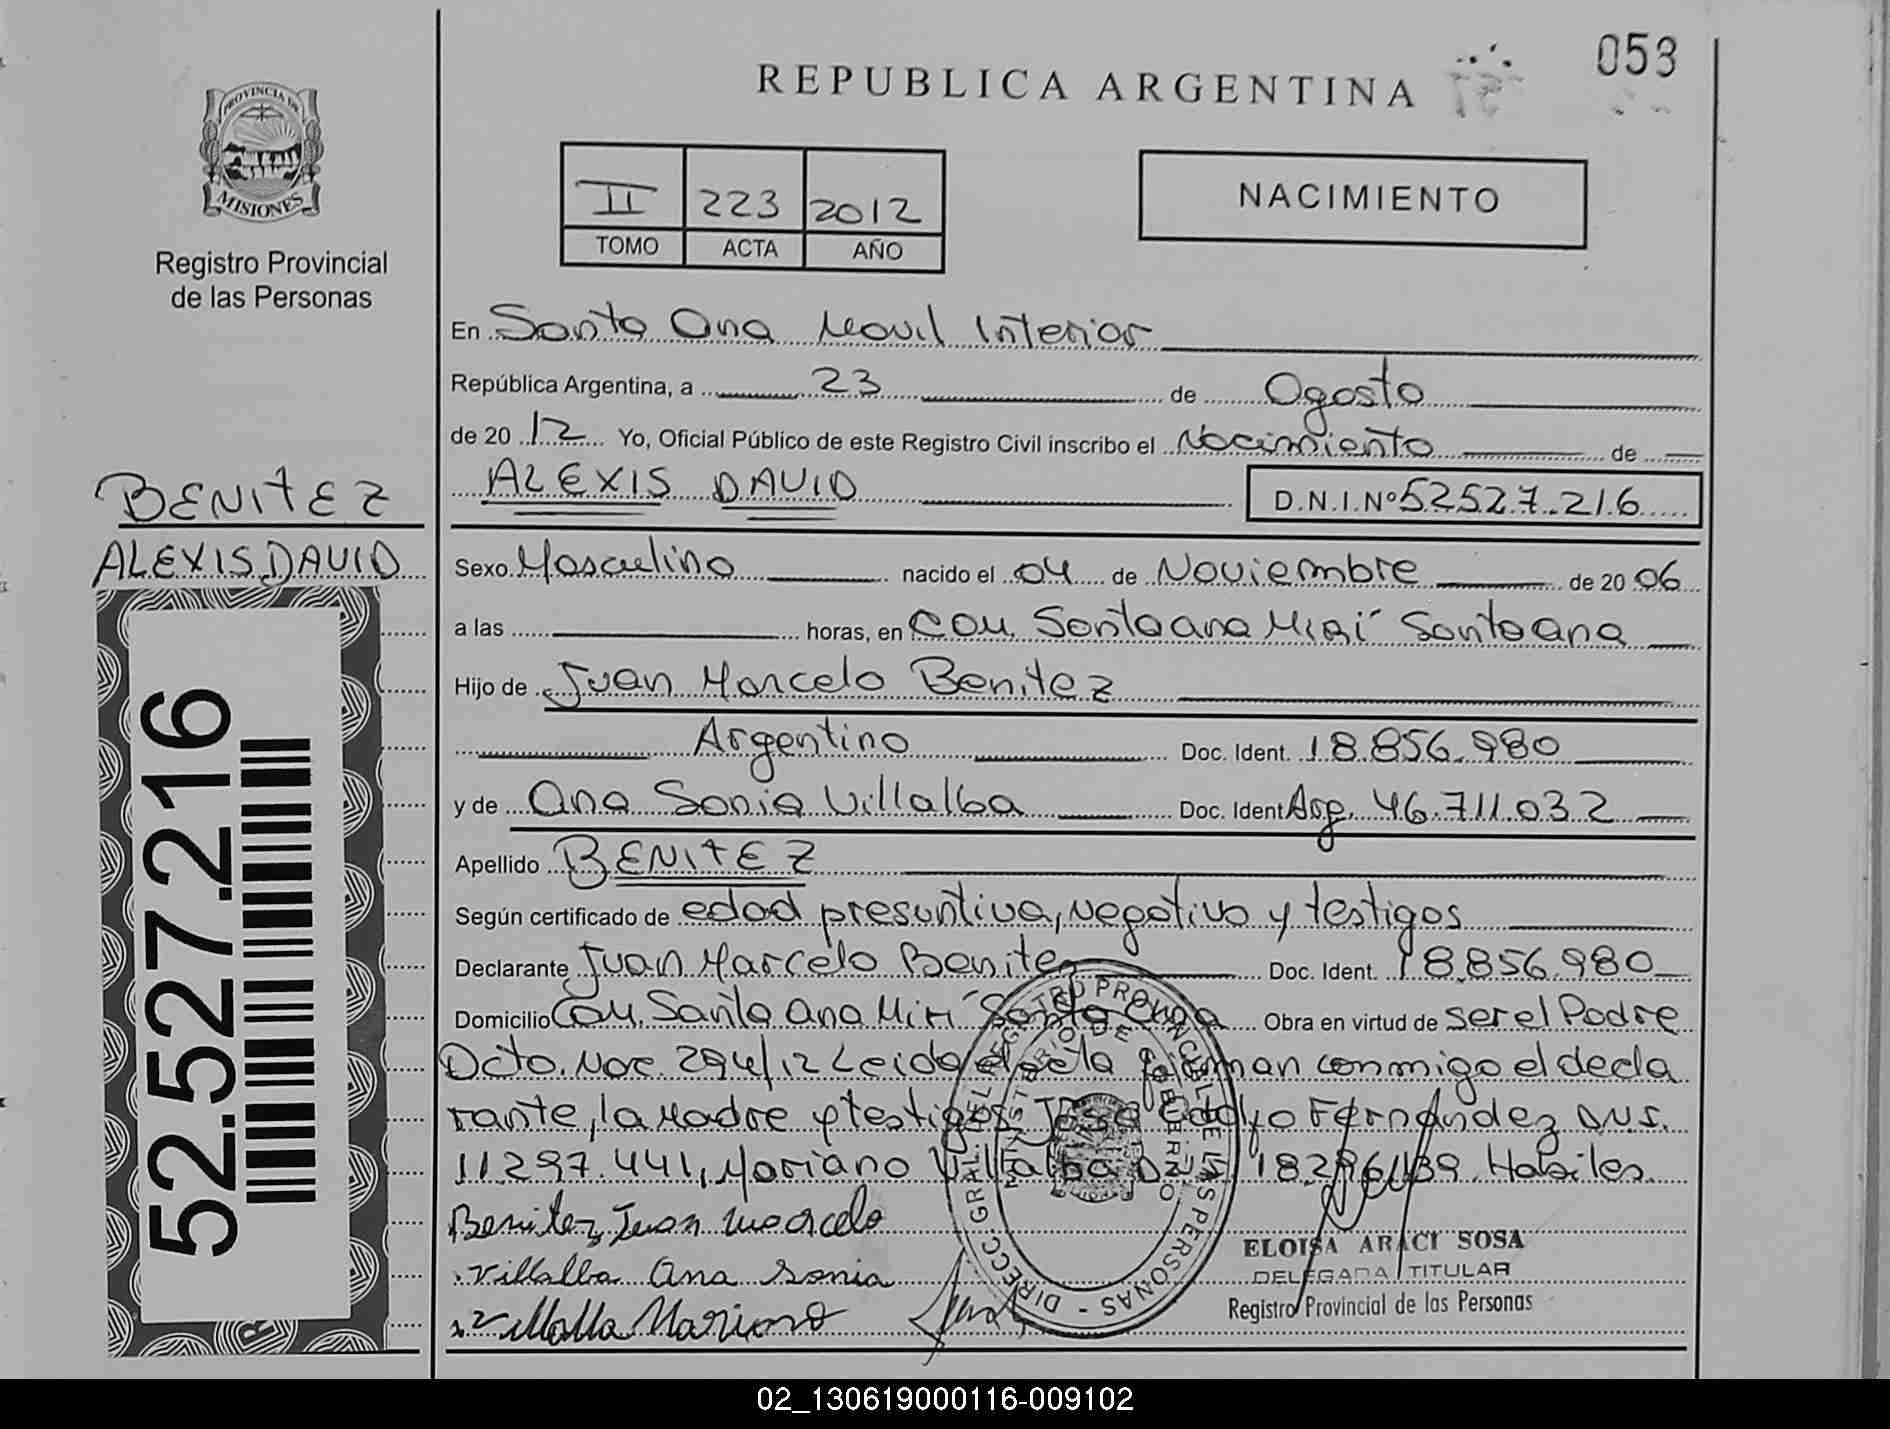 053
REPUBLICA ARGENTINA
PROVINCIA DE
MISIONES
Registro Provincial
de las Personas
II 223 2012
TOMO ACTA AÑO
NACIMIENTO
En Santa Ana Movil Interior
República Argentina, a 23 de Agosto
de 20 12 Yo, Oficial Público de este Registro Civil inscribo el Nacimiento de
ALEXIS DAVID D.N.I.Nº 52527.216
BENITEZ
ALEXIS DAVID
52.527.216
Sexo Masculino nacido el 04 de Noviembre de 20 06
a las horas, en Com. Santa ana Mirí Santa ana
Hijo de Juan Marcelo Benitez
Argentino Doc. Ident. 18.856.980
y de Ana Sonia Villalba Doc. Ident Arg. 46.711.032
Apellido BENITEZ
Según certificado de edad presuntiva, negativo y testigos
Declarante Juan Marcelo Benitez Doc. Ident. 18.856.980
Domicilio Com. Santa Ana Miri Santa Ana Obra en virtud de ser el Padre
Dcto. Nac. 294/12 Leida el acta firman conmigo el decla
rante, la Madre y testigos Jose Edolfo Fernández D.N.I.
11.297.441, Mariano Villalba D.N.I. 18.296.139 Habiles.
Benitez Juan Marcelo
Villalba Ana Sonia
Villalba Mariano
DIRECC. GRAL. DEL REGISTRO PROVINCIAL DE LAS PERSONAS -
MINISTERIO DE GOBIERNO
ELOISA ARACI SOSA
DELEGADA TITULAR
Registro Provincial de las Personas
02_130619000116-009102